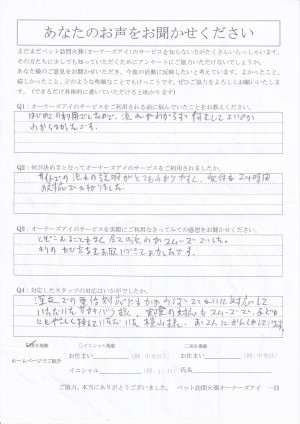 あなたのお声をお聞かせください
まだまだペット訪問火葬(オーナーズアイ)のサービスを知らない方がたくさんいらっしゃいます。
その方たちに少しでも知っていただくためにアンケートにご協力いただけないでしょうか。
あなた様のご意見をお聞かせいただき、今後の活動に反映したいと考えています。よかったこと、
嬉しかったこと、どのような些細なことでもけっこうです。ぜひご協力をよろしくお願いいたします。
(できるだけ具体的に書いていただけると助かります)
Q1：オーナーズアイのサービスをご利用される前に悩んでいたことをお教えください。
はじめての利用でしたので、流れがわからず何をしてよいのか
わからなかったです。
Q2：何が決め手となってオーナーズアイのサービスをご利用されましたか。
サイトでの流れの説明がとてもわかりやすく、受付も24時間
対応で決めました。
Q3：オーナーズアイのサービスを実際にご利用なさってみての感想をお聞かせください。
とどこおることもなく全ての流れがスムーズでした。
Q4：対応したスタッフの対応はいかがでしたか。
いただいた
にもやさしく接していただいた 横山様、
実名掲載
イニシャル掲載
ホームページでご紹介
お住まい
イニシャル
お住まい
氏名
ご協力、本当にありがとうございました。 ペット訪問火葬オーナーズアイ 一同